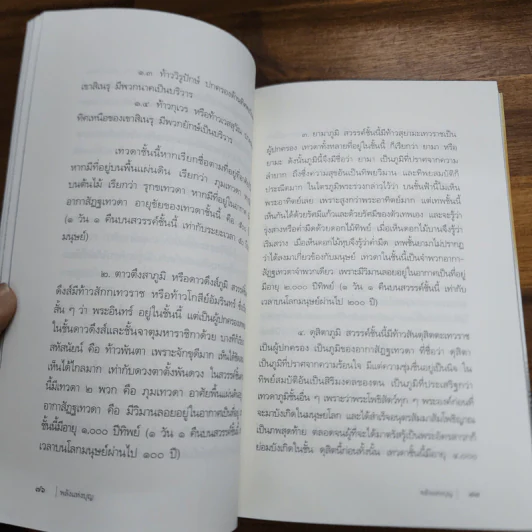 ๑.๓ ท้าววิรูปักษ์ ปกครองด้านทิศ
เขาสิเนรุ มีพวกนาคเป็นบริวาร
๑.๔ ท้าวกุเวร หรือท้าวเวสสุวัณ
ทิศเหนือของเขาสิเนรุ มีพวกยักษ์เป็นบริวาร
เทวดาชั้นนี้หากเรียกชื่อตามที่อยู่ที่อาศัย
หากมีที่อยู่บนพื้นแผ่นดิน เรียกว่า ภุมเทวดา
บนต้นไม้ เรียกว่า รุกขเทวดา หากมีที่อยู่ในอากาศ
อากาสัฏฐเทวดา อายุขัยของเทวดาชั้นนี้ คือ
(๑ วัน ๑ คืนบนสวรรค์ชั้นนี้ เท่ากับระยะเวลา ๕๐
มนุษย์)
๒. ดาวดึงสาภูมิ หรือดาวดึงส์ภูมิ
ดึงส์มีท้าวสักกเทวราช หรือท้าวโกสีย์อัมรินทร์
สั้น ๆ ว่า พระอินทร์ อยู่ในชั้นนี้ แต่เป็นผู้ปกครอง
ในชั้นดาวดึงส์และชั้นจาตุมหาราชิกาด้วย บางทีก็
สหัสนัยน์ คือ ท้าวพันตา เพราะจักขุดีมาก เห็นได้
เห็นได้ไกลมาก เท่ากับดวงตาตั้งพันดวง ในสวรรค์
นี้มีเทวดา ๒ พวก คือ ภุมเทวดา อาศัยพื้นแผ่นดิน
อากาสัฏฐเทวดา คือ มีวิมานลอยอยู่ในอากาศเป็นที่อยู่
ชั้นนี้มีอายุ ๑,๐๐๐ ปีทิพย์ (๑ วัน ๑ คืนบนสวรรค์ชั้นนี้
เวลาบนโลกมนุษย์ผ่านไป ๑๐๐ ปี)
๗๖ | พลังแห่งบุญ
๓. ยามาภูมิ สวรรค์ชั้นนี้มีท้าวสุยามะเทวราชเป็น
ผู้ปกครอง เทวดาทั้งหลายที่อยู่ในชั้นนี้ ก็เรียกว่า ยามา หรือ
ยามะ ดังนั้นภูมินี้จึงมีชื่อว่า ยามา เป็นภูมิที่ปราศจากความ
ลำบาก ถึงซึ่งความสุขอันเป็นทิพย์วิมาน และทิพยสมบัติก็
ประณีตมาก ในไตรภูมิพระร่วงกล่าวไว้ว่า บนชั้นฟ้านี้ไม่เห็น
พระอาทิตย์เลย เพราะสูงกว่าพระอาทิตย์มาก แต่เทพชั้นนี้
เห็นกันได้ด้วยรัศมีแก้วและด้วยรัศมีของตัวเทพเอง และจะรู้ว่า
รุ่งสางหรือค่ำมืดด้วยดอกไม้ทิพย์ เมื่อเห็นดอกไม้บานจึงรู้ว่า
เริ่มสว่าง เมื่อเห็นดอกไม้หุบจึงรู้ว่าค่ำมืด เทพชั้นยามาไม่ปรากฏ
ว่าได้ลงมาเกี่ยวข้องกับมนุษย์ เทวดาในชั้นนี้เป็นจำพวกอากา-
สัฏฐเทวดาจำพวกเดียว เพราะมีวิมานลอยอยู่ในอากาศเป็นที่อยู่
มีอายุ ๒,๐๐๐ ปีทิพย์ (๑ วัน ๑ คืนบนสวรรค์ชั้นนี้ เท่ากับ
เวลาบนโลกมนุษย์ผ่านไป ๒๐๐ ปี)
๔. ดุสิตาภูมิ สวรรค์ชั้นนี้มีท้าวสันดุสิตตะเทวราช
เป็นผู้ปกครอง เป็นภูมิของอากาสัฏฐเทวดา ที่ชื่อว่า ดุสิตา
เป็นภูมิที่ปราศจากความร้อนใจ มีแต่ความชุ่มชื่นอยู่เป็นนิจ ใน
ทิพย์สมบัติอันเป็นสิริมงคลของตน เป็นภูมิที่ประเสริฐกว่า
เทวภูมิชั้นอื่น ๆ เพราะว่าพระโพธิสัตว์ทุก ๆ พระองค์ก่อนที่
จะมาบังเกิดในมนุษยโลก และได้สำเร็จอนุตรสัมมาสัมโพธิญาณ
เป็นภพสุดท้าย ตลอดจนผู้ที่จะได้มาตรัสรู้เป็นพระอัครสาวกก็
ย่อมบังเกิดในชั้น ดุสิตนี้ก่อนทั้งนั้น เทวดาชั้นนี้มีอายุ ๔,๐๐๐
พลังแห่งบุญ | ๗๗